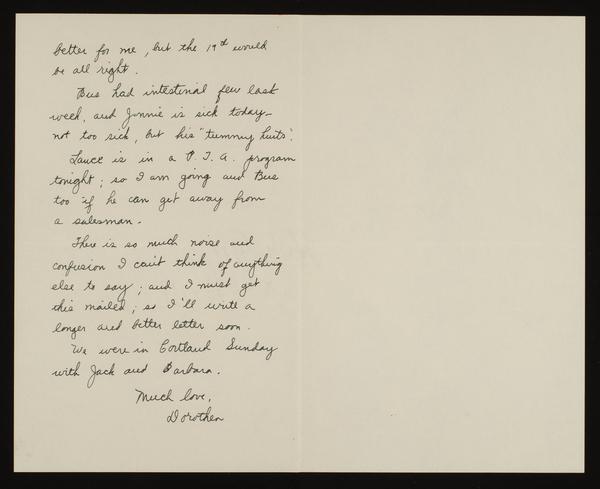 better for me, but the 19th would
be all right.
Bus had intestinal flew last
week, and Jonnie is sick today—
not too sick, but his "tummy hurts".
Lance is in a P.T.A. program
tonight; so I am going and Bus
too if he can get away from
a salesman.
There is so much noise and
confusion I can't think of anything
else to say; and I must get
this mailed; so I'll write a
longer and better letter soon.
We were in Cortland Sunday
with Jack and Barbara.
Much love,
Dorothea